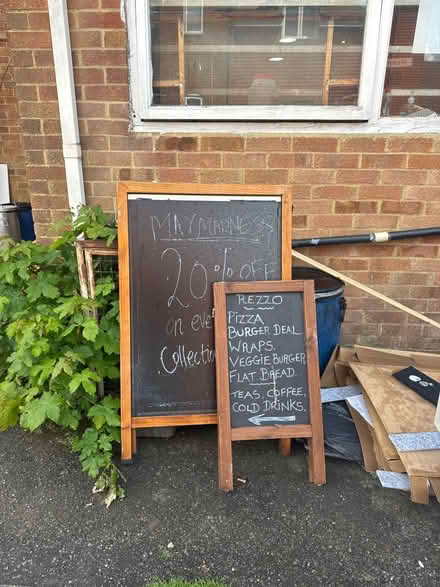 MAY MADNESS
20% OFF
on eve
Collectio
REZZO
PIZZA
BURGER DEAL
WRAPS.
VEGGIE BURGER
FLAT BREAD.
TEAS, COFFEE,
COLD DRINKS.